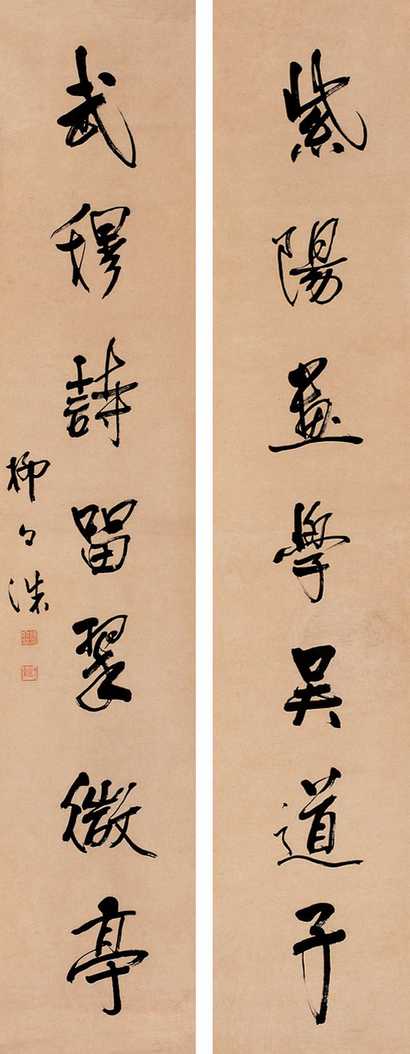 紫陽畫學吳道子
武穆詩留翠微亭